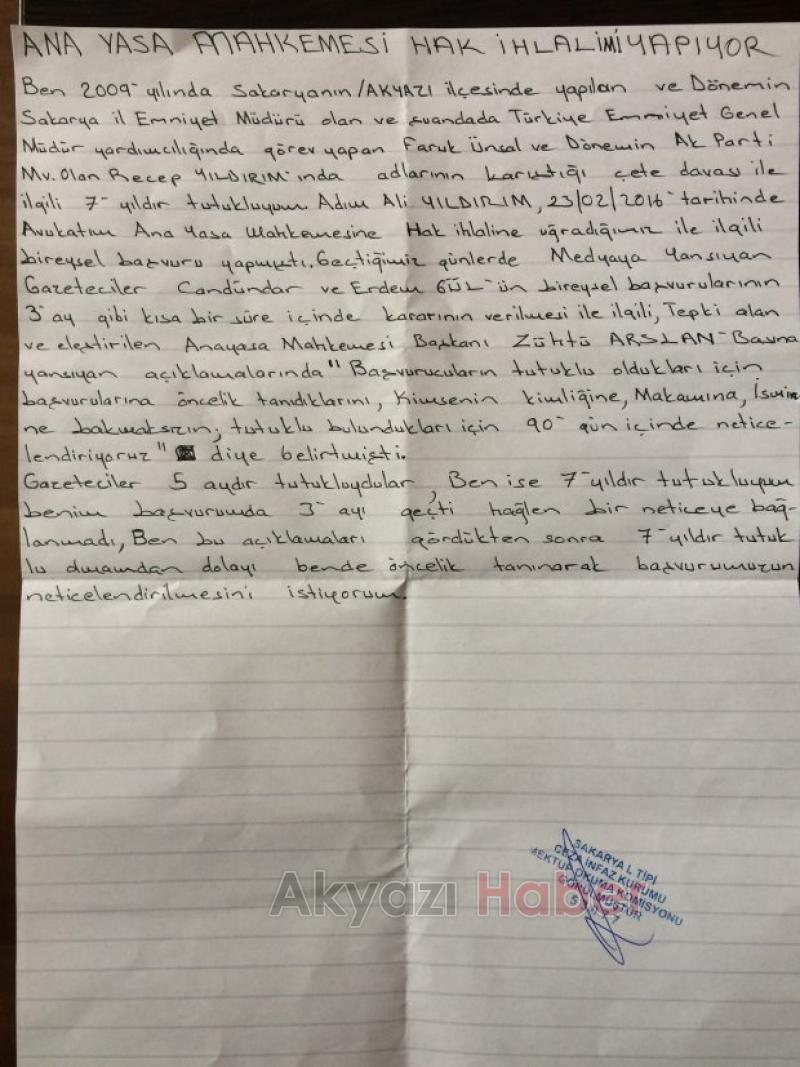 ANA YASA MAHKEMESİ HAK İHLALİMİ YAPIYOR
Ben 2009 yılında Sakaryanın/AKYAZI ilçesinde yapılan ve Dönemin
Sakarya il Emniyet Müdürü olan ve şuandada Türkiye Emniyet Genel
Müdür yardımcılığında görev yapan Faruk Ünsal ve Dönemin Ak Parti
Mv. Olan Recep YILDIRIM'ında adlarının karıştığı çete davası ile
ilgili 7-yıldır tutukluyum. Adım Ali YILDIRIM, 23/02/2016-tarihinde
Avukatım Ana Yasa Mahkemesine Hak ihlaline uğradığımız ile ilgili
bireysel başvuru yapmıştı. Geçtiğimiz günlerde Medyaya Yansıyan
Gazeteciler Candündar ve Erdem GÜL-ün bireysel başvurularının
3-ay gibi kısa bir süre içinde kararının verilmesi ile ilgili, Tepki alan
ve eleştirilen Anayasa Mahkemesi Başkanı Zühtü ARSLAN-Basına
yansıyan açıklamalarında" Başvurucuların tutuklu oldukları için
başvurularına öncelik tanıdıklarını, Kimsenin kimliğine, Makamına, İsmi
ne bakmaksızın, tutuklu bulundukları için 90- gün içinde netice-
lendiriyoruz" diye belirtmişti.
Gazeteciler 5 aydır tutukluydular, Ben ise 7-yıldır tutukluyum
benim başvurumda 3-ayı geçti hağlen bir neticeye bağ-
lanmadı, Ben bu açıklamaları gördükten sonra 7-yıldır tutuk
lu olmamdan dolayı bende öncelik tanınarak başvurumuzun
neticelendirilmesini istiyorum.
SAKARYA L TİPİ
CEZA İNFAZ KURUMU
MEKTUP OKUMA KOMİSYONU
GÖRÜLMÜŞTÜR
Akyazı Haber